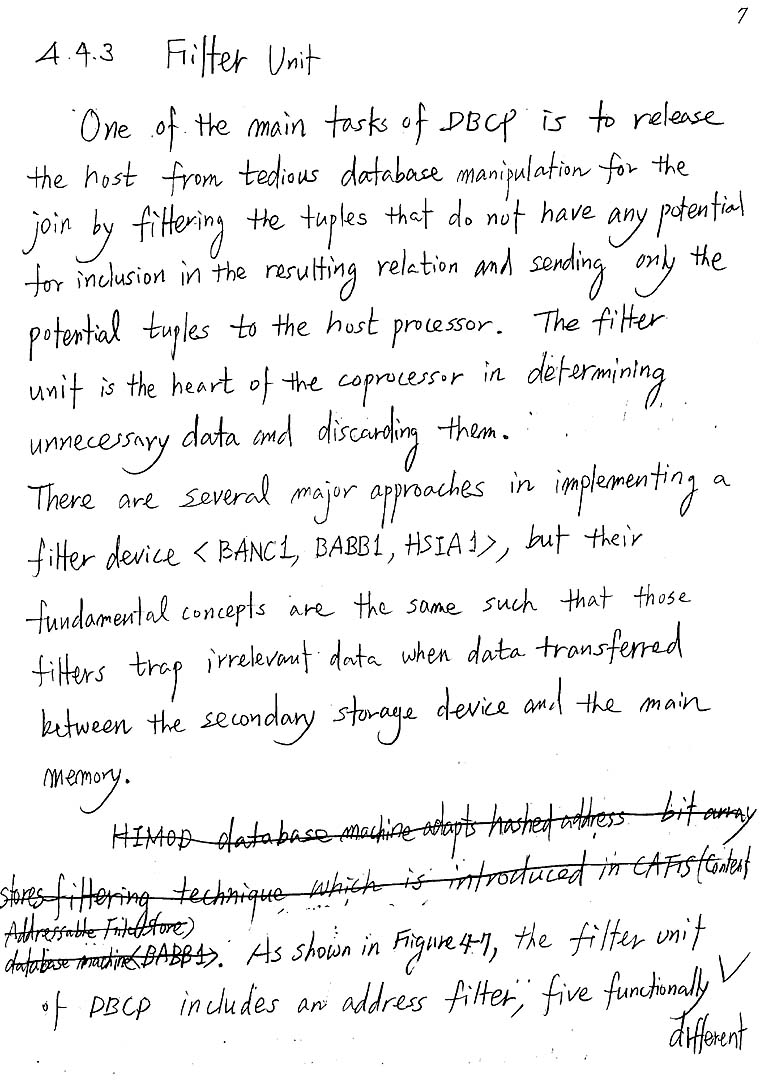 7
4.4.3 Filter Unit
One of the main tasks of DBCP is to release
the host from tedious database manipulation for the
join by filtering the tuples that do not have any potential
for inclusion in the resulting relation and sending only the
potential tuples to the host processor. The filter
unit is the heart of the coprocessor in determining
unnecessary data and discarding them.
There are several major approaches in implementing a
filter device < BANC1, BABB1, HSIA1>, but their
fundamental concepts are the same such that those
filters trap irrelevant data when data transferred
between the secondary storage device and the main
memory.
HIMOD database machine adapts hashed address bit array
stores filtering technique which is introduced in CAFS (Content
Addressable File Store)
database machine <BABB1>. As shown in Figure 4-7, the filter unit
of DBCP includes an address filter, five functionally
different